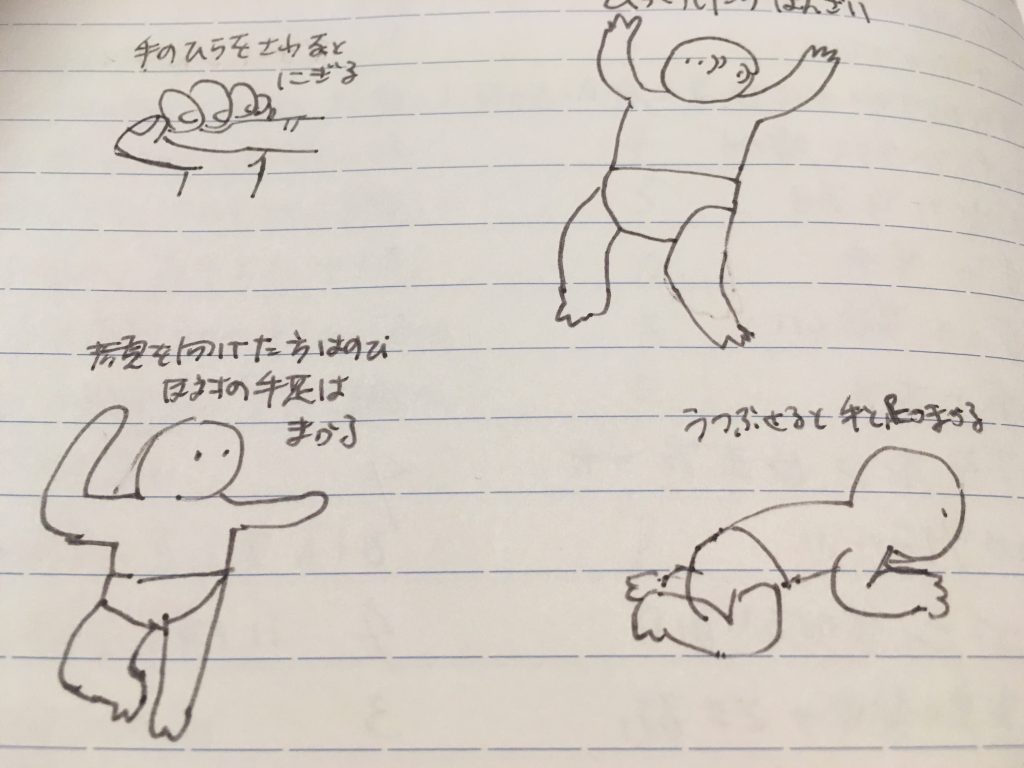 手のひらをさわると
にぎる
びっくりしたら ばんざい
顔を向けた方はのび
反対の手足は
まがる
うつぶせると 手と足をまげる